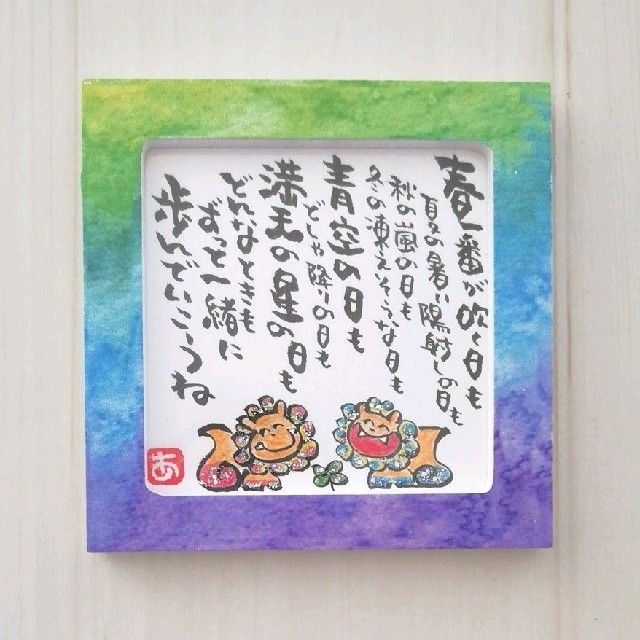 春一番が吹く日も
夏の暑い陽射しの日も
秋の嵐の日も
冬の凍えそうな日も
青空の日も
どしゃ降りの日も
満天の星の日も
どんなときも
ずっと一緒に
歩んでいこうね
あ